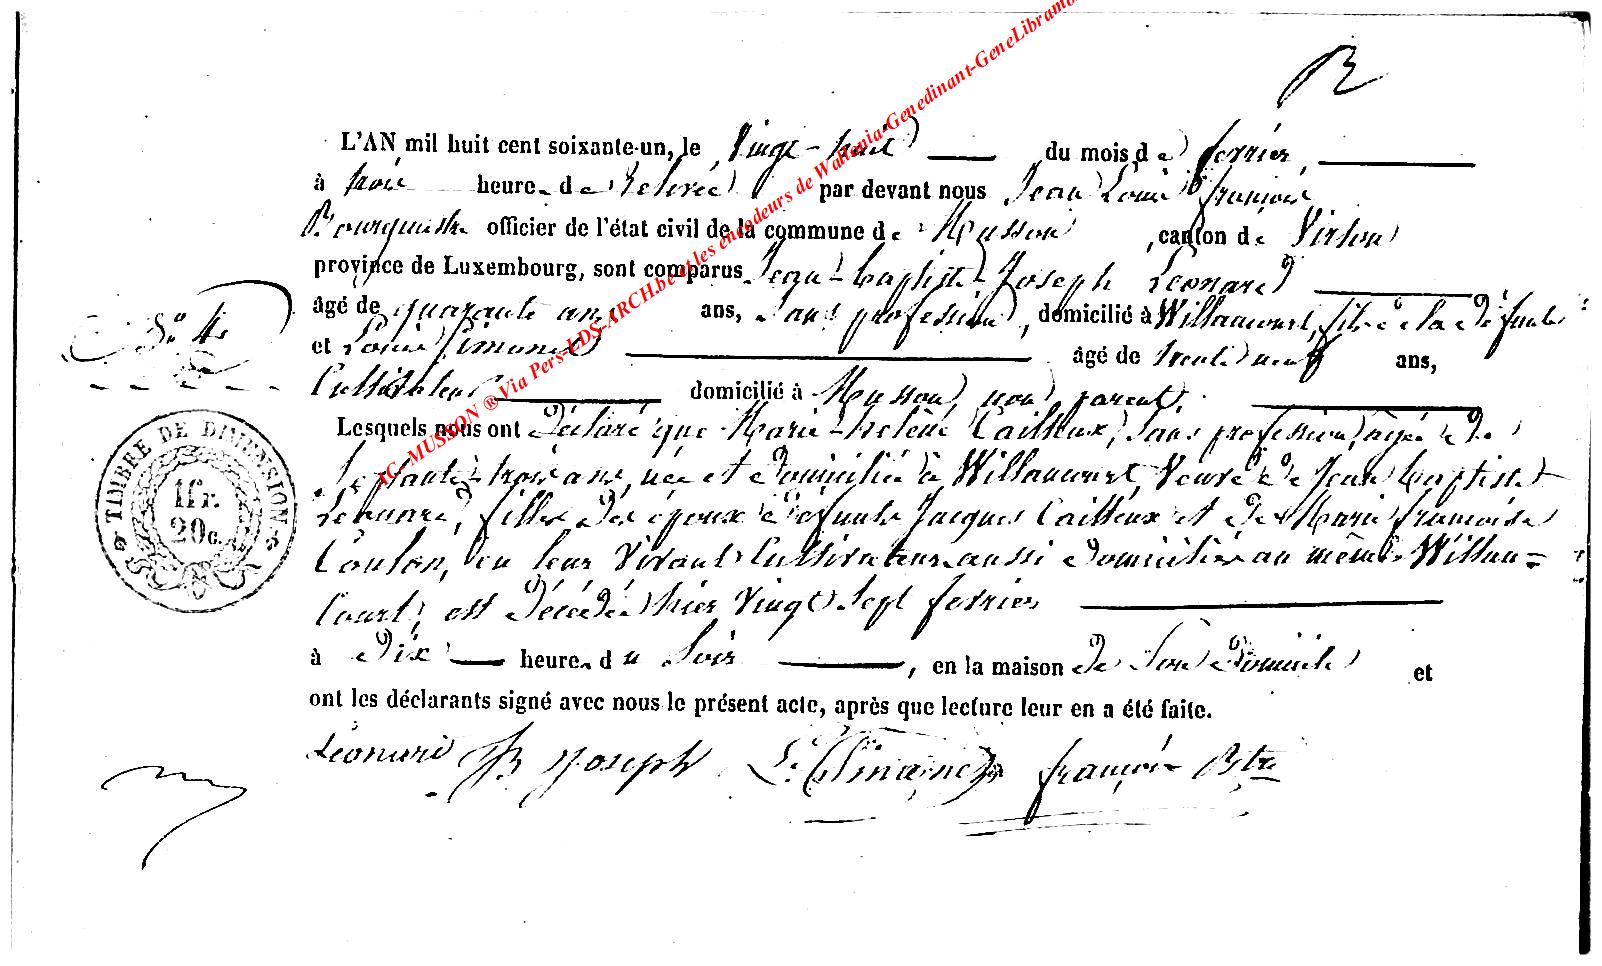 L'AN mil huit cent soixante-un, le Vingt-huit du mois de fevrier
à trois heures de Relevée par devant nous Jean Louis françois
Bourguestre officier de l'état civil de la commune de Musson, canton de Virton
province de Luxembourg, sont comparus Jean-Baptiste-Joseph Léonard
âgé de quarante un ans, sans profession, domicilié à Willancourt, fils de la défunte
N° 4
et Louis Simonet âgé de trente neuf ans,
Cultivateur domicilié à Musson, non parent,
Lesquels nous ont Déclaré que Marie-helène Cailteux, sans profession, agée de
septante-trois ans, née et domiciliée à Willancourt, Veuve de Jean Baptiste
Léonard, fille des époux défunts Jacques Cailteux et de Marie françoise
Coulon, en leur Vivant Cultivateurs aussi domiciliés au même Willan=
court, est décédée hier Vingt Sept fevrier
à Dix heures du Soir, en la maison de Son domicile et
ont les déclarants signé avec nous le présent acte, après que lecture leur en a été faite.
Léonard JB Joseph L. françois Btre
TIMBRE DE DIMENSION
1fr.
20c.
IG-MUSSON ® Via Pers-LDS-ARCH.be et les encodeurs de Wallonia-Genedinant-GeneLibramo